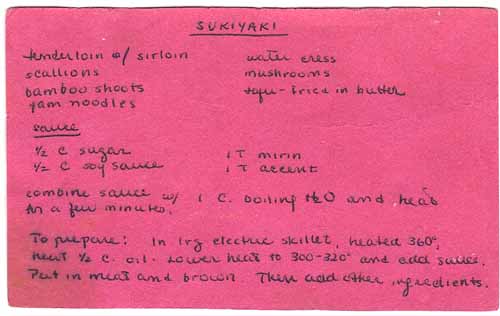 SUKIYAKI
tenderloin o/ sirloin
scallions
bamboo shoots
yam noodles
water cress
mushrooms
tofu - fried in butter
sauce
½ C sugar
½ C soy sauce
1 T mirin
1 T accent
combine sauce w/ 1 C. boiling H2O and heat
for a few minutes.
To prepare: In lrg electric skillet, heated 360°,
heat ½ c. oil. Lower heat to 300-320° and add sauce.
Put in meat and brown. Then add other ingredients.